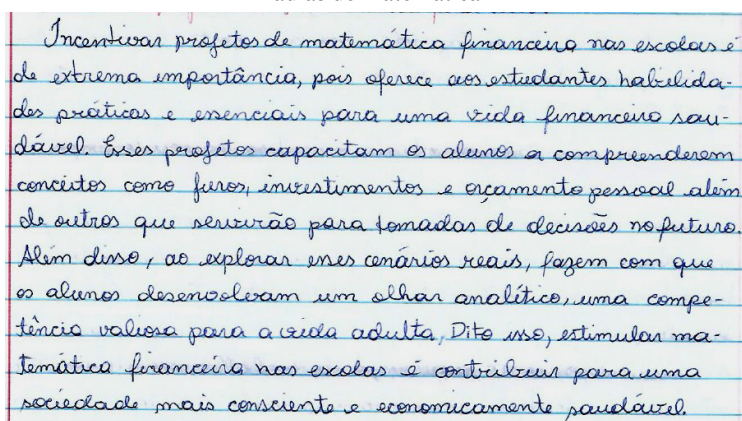 Incentivar projetos de matemática financeira nas escolas é
de extrema importância, pois oferece aos estudantes habilida-
des práticas e essenciais para uma vida financeira sau-
dável. Esses projetos capacitam os alunos a compreenderem
conceitos como juros, investimentos e orçamento pessoal além
de outros que servirão para tomadas de decisões no futuro.
Além disso, ao explorar esses cenários reais, fazem com que
os alunos desenvolvam um olhar analítico, uma compe-
tência valiosa para a vida adulta, Dito isso, estimular ma-
temática financeira nas escolas é contribuir para uma
sociedade mais consciente e economicamente saudável.